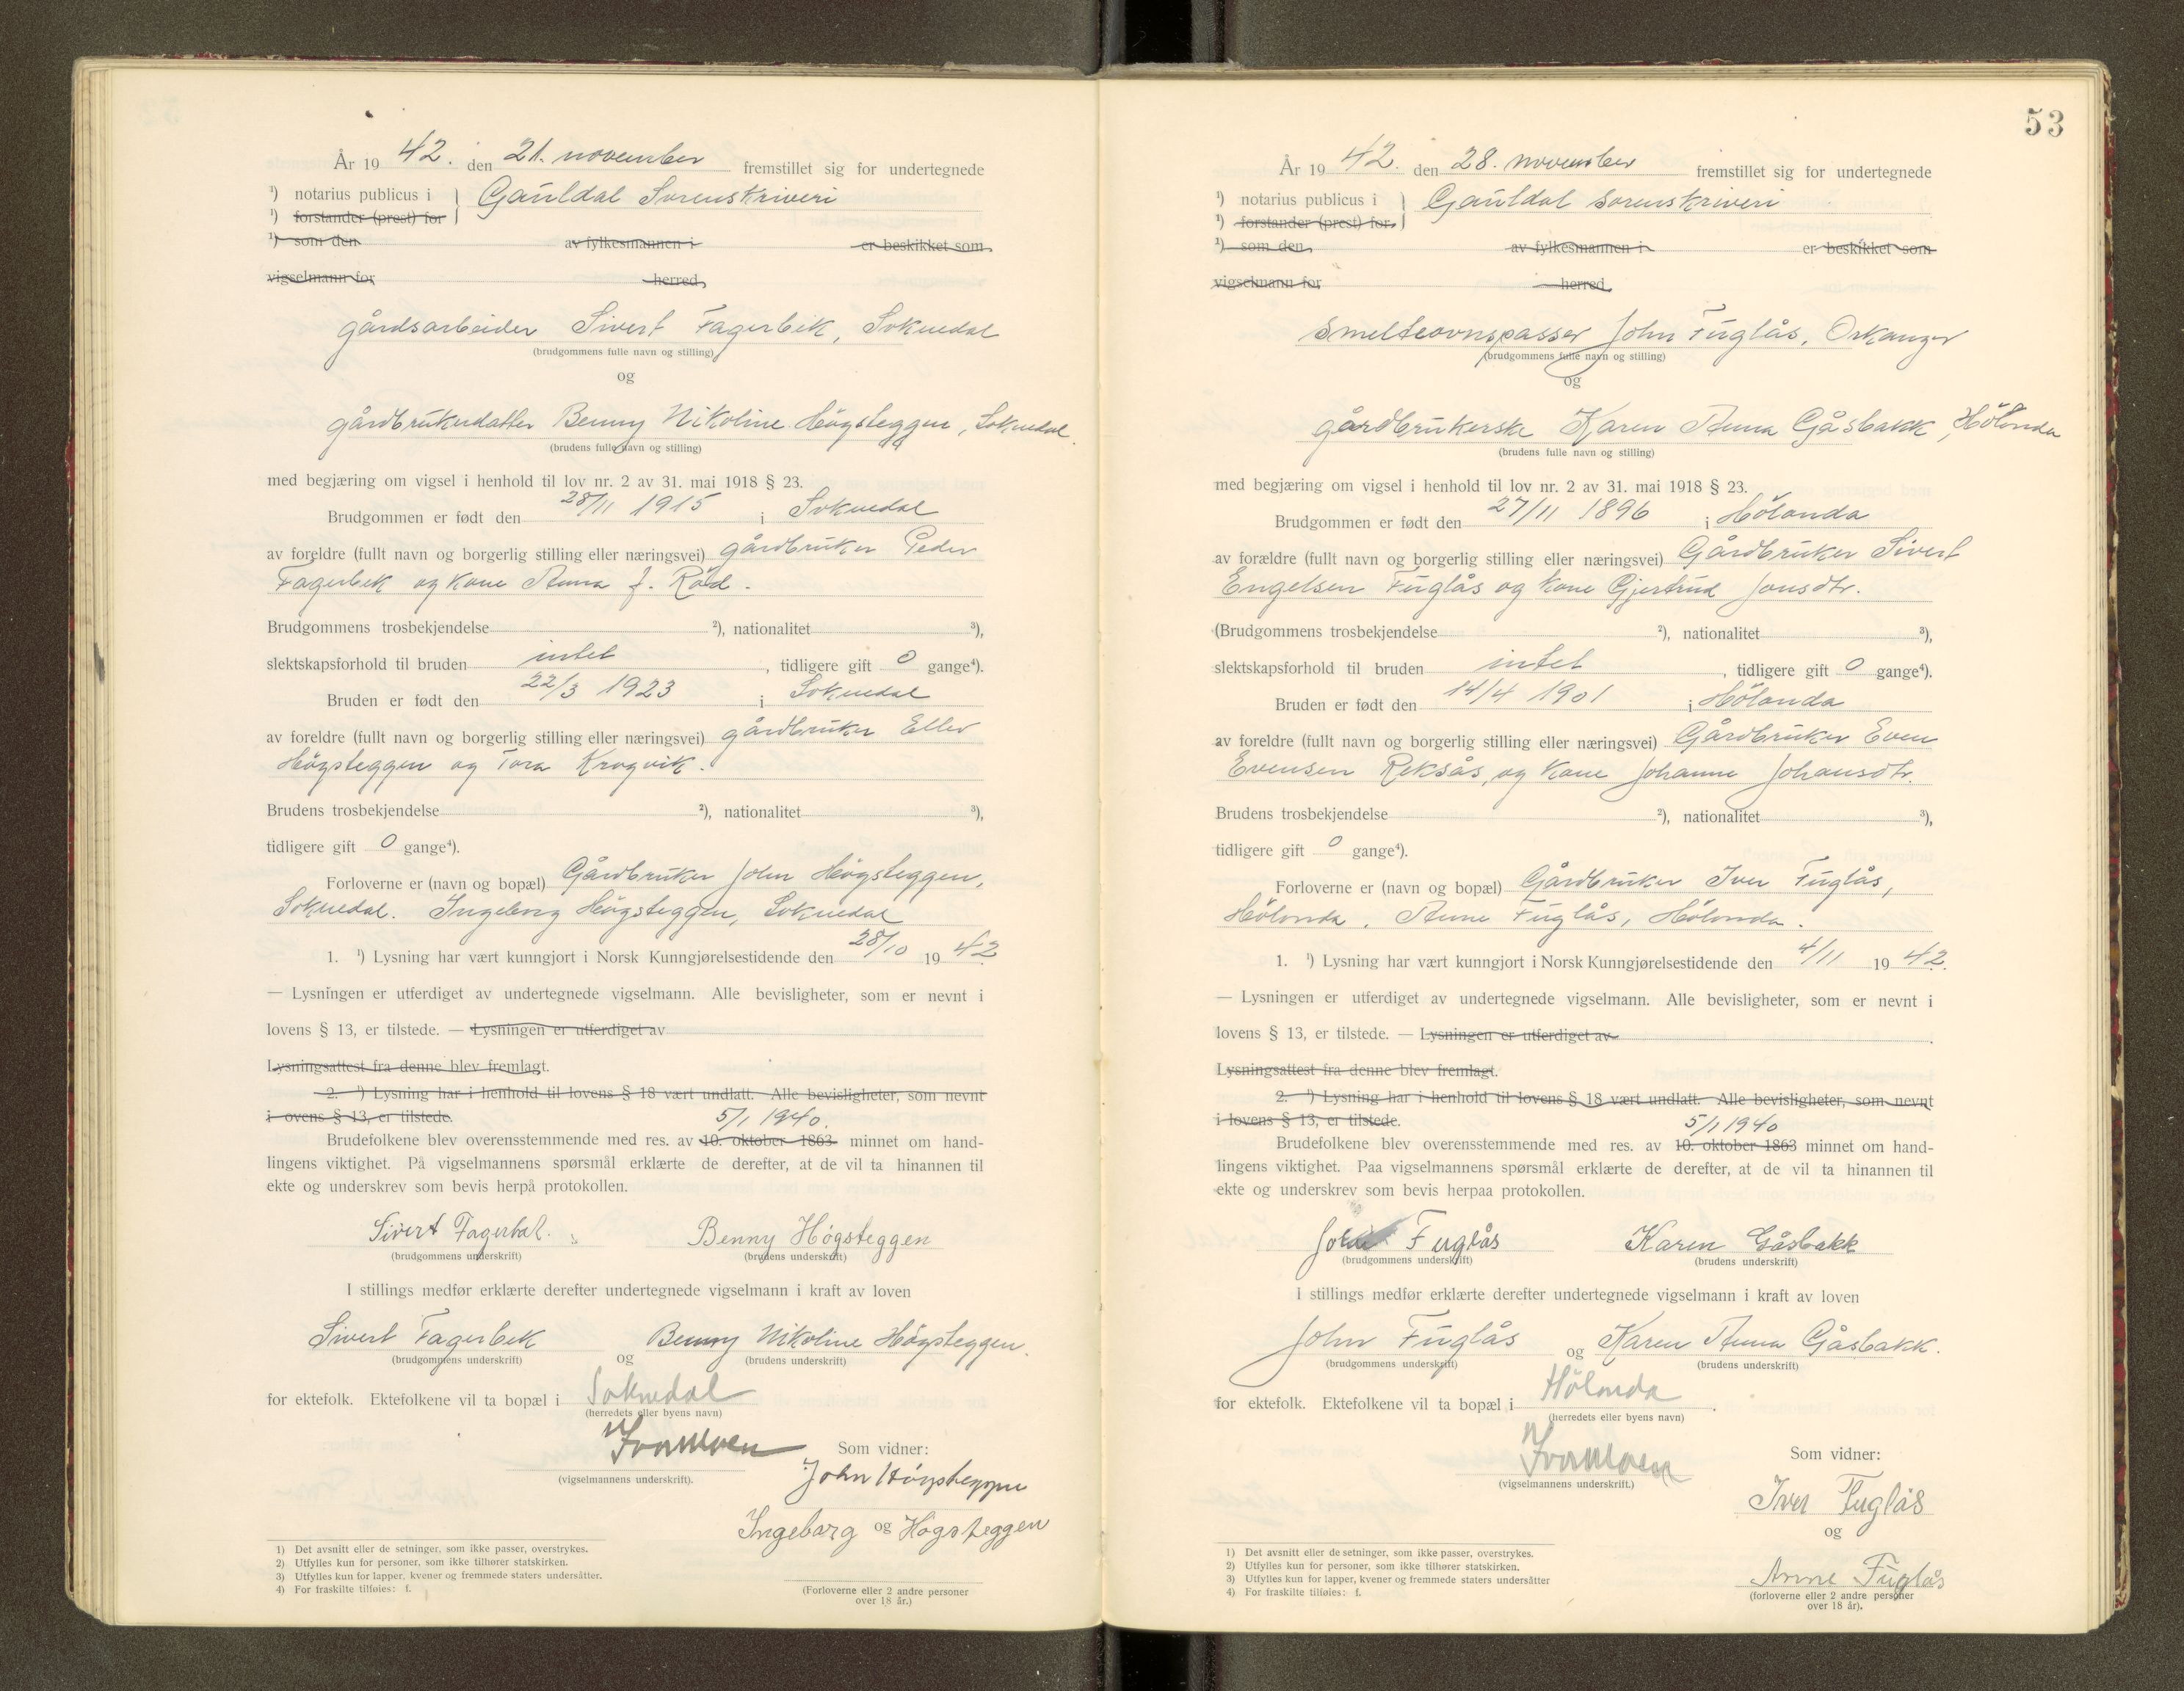 År 19 42. den 21. november fremstillet sig for undertegnede
¹) notarius publicus i } Gauldal Sorenskriveri
¹) forstander (prest) for
¹) som den av fylkesmannen i er beskikket som
vigselmann for herred
gårdsarbeider Sivert Fagerbek, Soknedal
(brudgommens fulle navn og stilling)
og
gårdbrukerdatter Benny Nikoline Högsteggen, Soknedal.
(brudens fulle navn og stilling)
med begjæring om vigsel i henhold til lov nr. 2 av 31. mai 1918 § 23.
Brudgommen er født den 28/11 1915 i Soknedal
av foreldre (fullt navn og borgerlig stilling eller næringsvei) gårdbruker Peder
Fagerbek og kone Anna f. Rød.
Brudgommens trosbekjendelse ²), nationalitet ³),
slektskapsforhold til bruden intet, tidligere gift 0 gange⁴).
Bruden er født den 22/3 1923 i Soknedal
av foreldre (fullt navn og borgerlig stilling eller næringsvei) gårdbruker Ellev
Högsteggen og Tora Krogvik.
Brudens trosbekjendelse ²), nationalitet ³),
tidligere gift 0 gange⁴).
Forloverne er (navn og bopæl) Gårdbruker John Högsteggen,
Soknedal. Ingeborg Högsteggen, Soknedal
1. ¹) Lysning har vært kunngjort i Norsk Kunngjørelsestidende den 28/10 19 42
— Lysningen er utferdiget av undertegnede vigselmann. Alle bevisligheter, som er nevnt i
lovens § 13, er tilstede. — Lysningen er utferdiget av
Lysningsattest fra denne blev fremlagt.
2. ¹) Lysning har i henhold til lovens § 18 vært undlatt. Alle bevisligheter, som nevnt
i ovens § 13, er tilstede.
5/1 1940.
Brudefolkene blev overensstemmende med res. av 10. oktober 1863 minnet om hand-
lingens viktighet. På vigselmannens spørsmål erklærte de derefter, at de vil ta hinannen til
ekte og underskrev som bevis herpå protokollen.
Sivert Fagerbek. Benny Høgsteggen
(brudgommens underskrift) (brudens underskrift)
I stillings medfør erklærte derefter undertegnede vigselmann i kraft av loven
Sivert Fagerbek og Benny Nikoline Högsteggen.
(brudgommens underskrift) (brudens underskrift)
for ektefolk. Ektefolkene vil ta bopæl i Soknedal
(herredets eller byens navn)
Som vidner:
(vigselmannens underskrift).
John Högsteggen
Ingeborg og Høgsteggen
1) Det avsnitt eller de setninger, som ikke passer, overstrykes.
2) Utfylles kun for personer, som ikke tilhører statskirken.
3) Utfylles kun for lapper, kvener og fremmede staters undersåtter.
4) For fraskilte tilføies: f.
(Forloverne eller 2 andre personer
over 18 år.)
53
År 19 42. den 28. november fremstillet sig for undertegnede
¹) notarius publicus i } Gauldal sorenskriveri
¹) forstander (prest) for
¹) som den av fylkesmannen i er beskikket som
vigselmann for herred
Smelteovnspasser John Fuglås, Orkanger
(brudgommens fulle navn og stilling)
og
gårdbrukerske Karen Anna Gåsbakk, Hölonda
(brudens fulle navn og stilling)
med begjæring om vigsel i henhold til lov nr. 2 av 31. mai 1918 § 23.
Brudgommen er født den 27/11 1896 i Hölonda
av forældre (fullt navn og borgerlig stilling eller næringsvei) Gårdbruker Sivert
Engelsen Fuglås og kone Gjertrud Jonsdtr.
(Brudgommens trosbekjendelse ²), nationalitet ³),
slektskapsforhold til bruden intet, tidligere gift 0 gange⁴).
Bruden er født den 14/4 1901 i Hölonda
av foreldre (fullt navn og borgerlig stilling eller næringsvei) Gårdbruker Even
Evensen Reksås, og kone Johanne Johansdtr.
Brudens trosbekjendelse ²), nationalitet ³),
tidligere gift 0 gange⁴).
Forloverne er (navn og bopæl) Gårdbruker Iver Fuglås,
Hölonda. Anne Fuglås, Hölonda.
1. ¹) Lysning har vært kunngjort i Norsk Kunngjørelsestidende den 4/11 19 42.
— Lysningen er utferdiget av undertegnede vigselmann. Alle bevisligheter, som er nevnt i
lovens § 13, er tilstede. — Lysningen er utferdiget av
Lysningsattest fra denne blev fremlagt.
2. ¹) Lysning har i henhold til lovens § 18 vært undlatt. Alle bevisligheter, som nevnt
i lovens § 13, er tilstede.
5/1 1940
Brudefolkene blev overensstemmende med res. av 10. oktober 1863 minnet om hand-
lingens viktighet. Paa vigselmannens spørsmål erklærte de derefter, at de vil ta hinannen til
ekte og underskrev som bevis herpaa protokollen.
John Fuglås Karen Gåsbakk
(brudgommens underskrift) (brudens underskrift)
I stillings medfør erklærte derefter undertegnede vigselmann i kraft av loven
John Fuglås og Karen Anna Gåsbakk.
(brudgommens underskrift) (brudens underskrift)
for ektefolk. Ektefolkene vil ta bopæl i Hölonda.
(herredets eller byens navn)
Som vidner:
(vigselmannens underskrift.)
Iver Fuglås
og
Anne Fuglås
(forloverne eller 2 andre personer
over 18 år).
1) Det avsnitt eller de setninger, som ikke passer, overstrykes.
2) Utfylles kun for personer, som ikke tilhører statskirken.
3) Utfylles kun for lapper, kvener og fremmede staters undersåtter
4) For fraskilte tilføies: f.